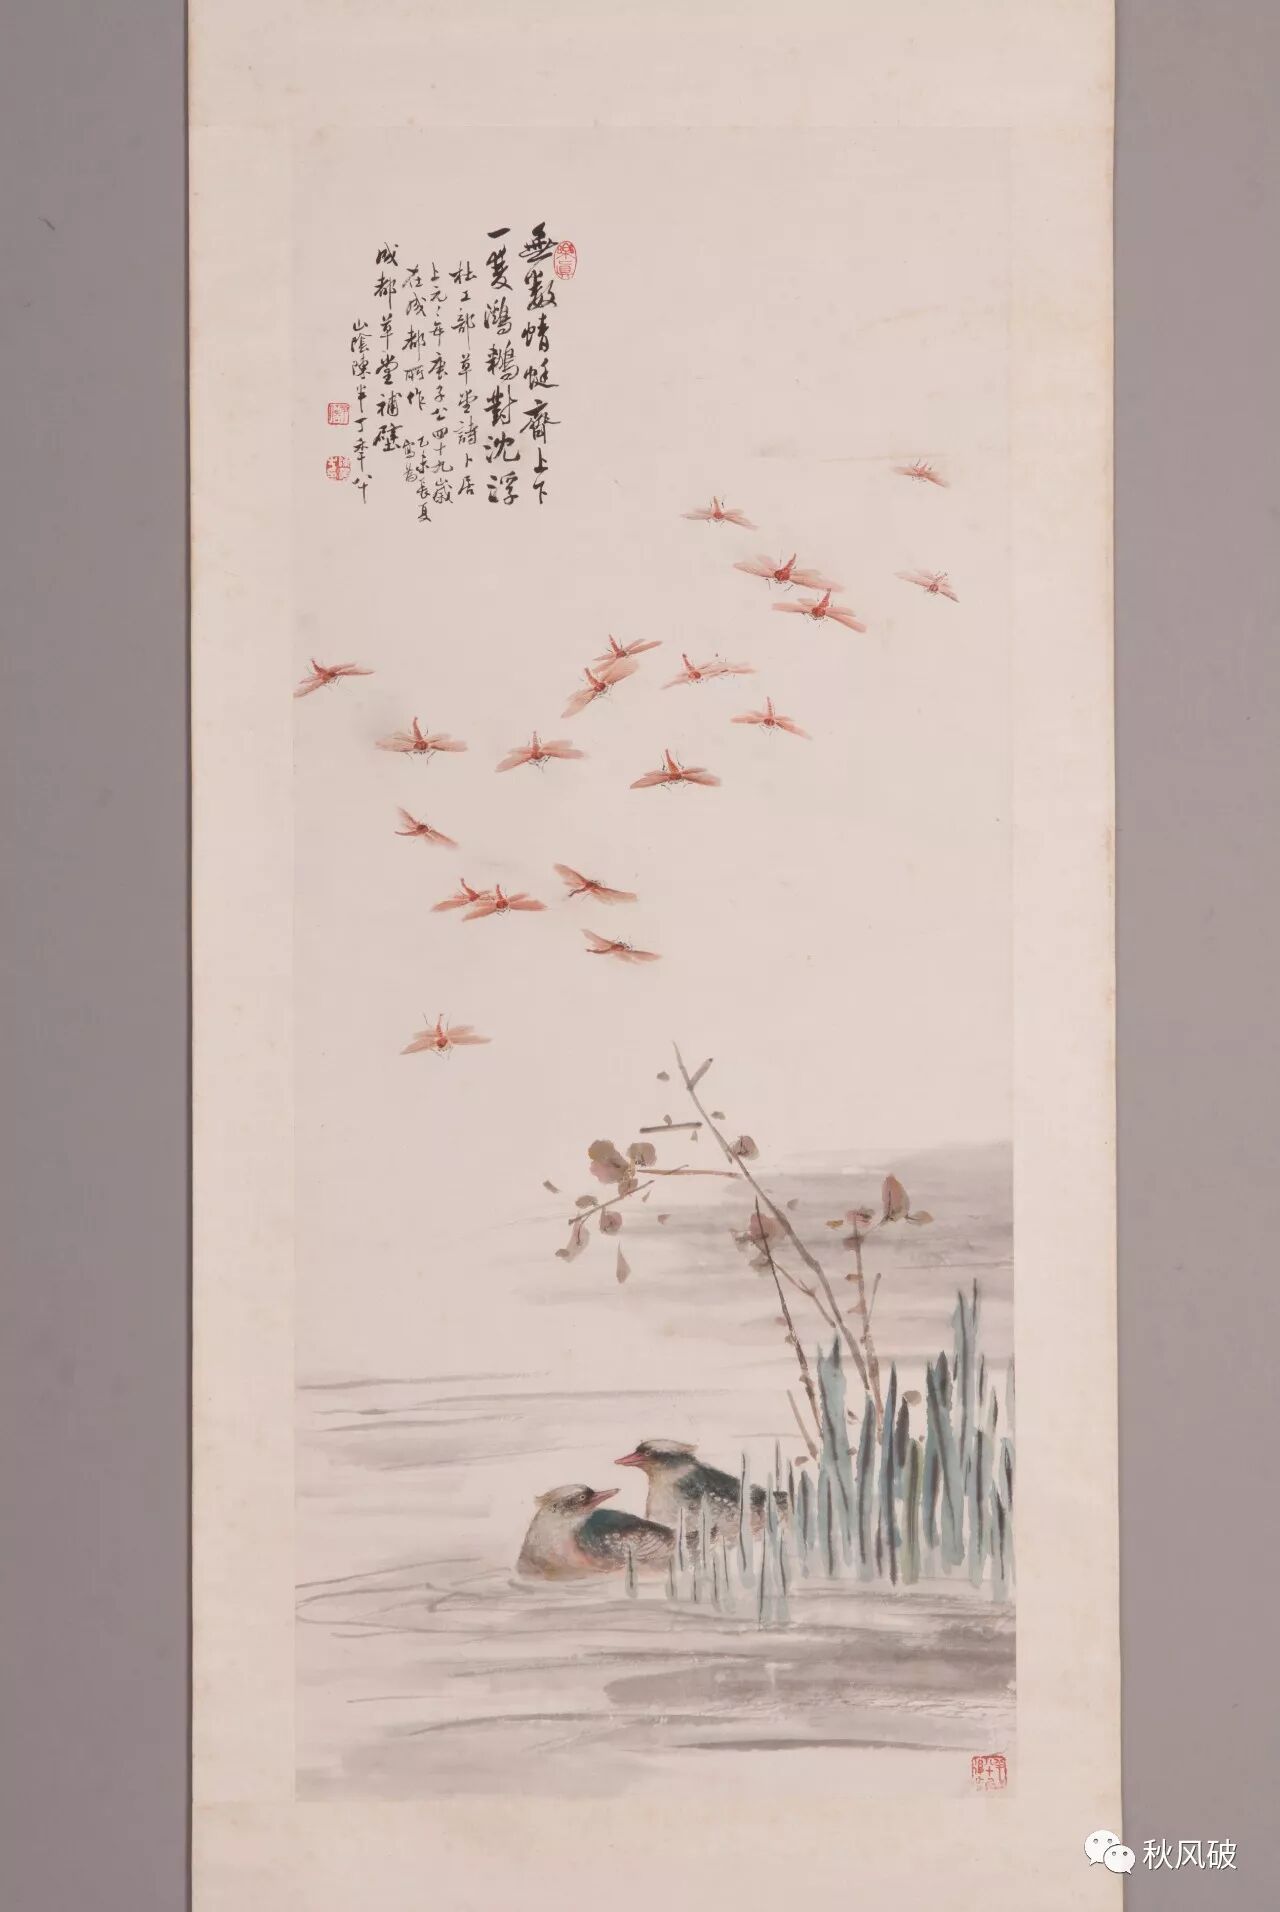 無数蜻蜓齊上下
一雙鸂鶒對沈浮
杜工部草堂詩卜居
上元〻年庚子公四十九歲
在成都所作 乙未長夏
寫為
成都草堂補壁
山陰陳半丁年八十
秋风破